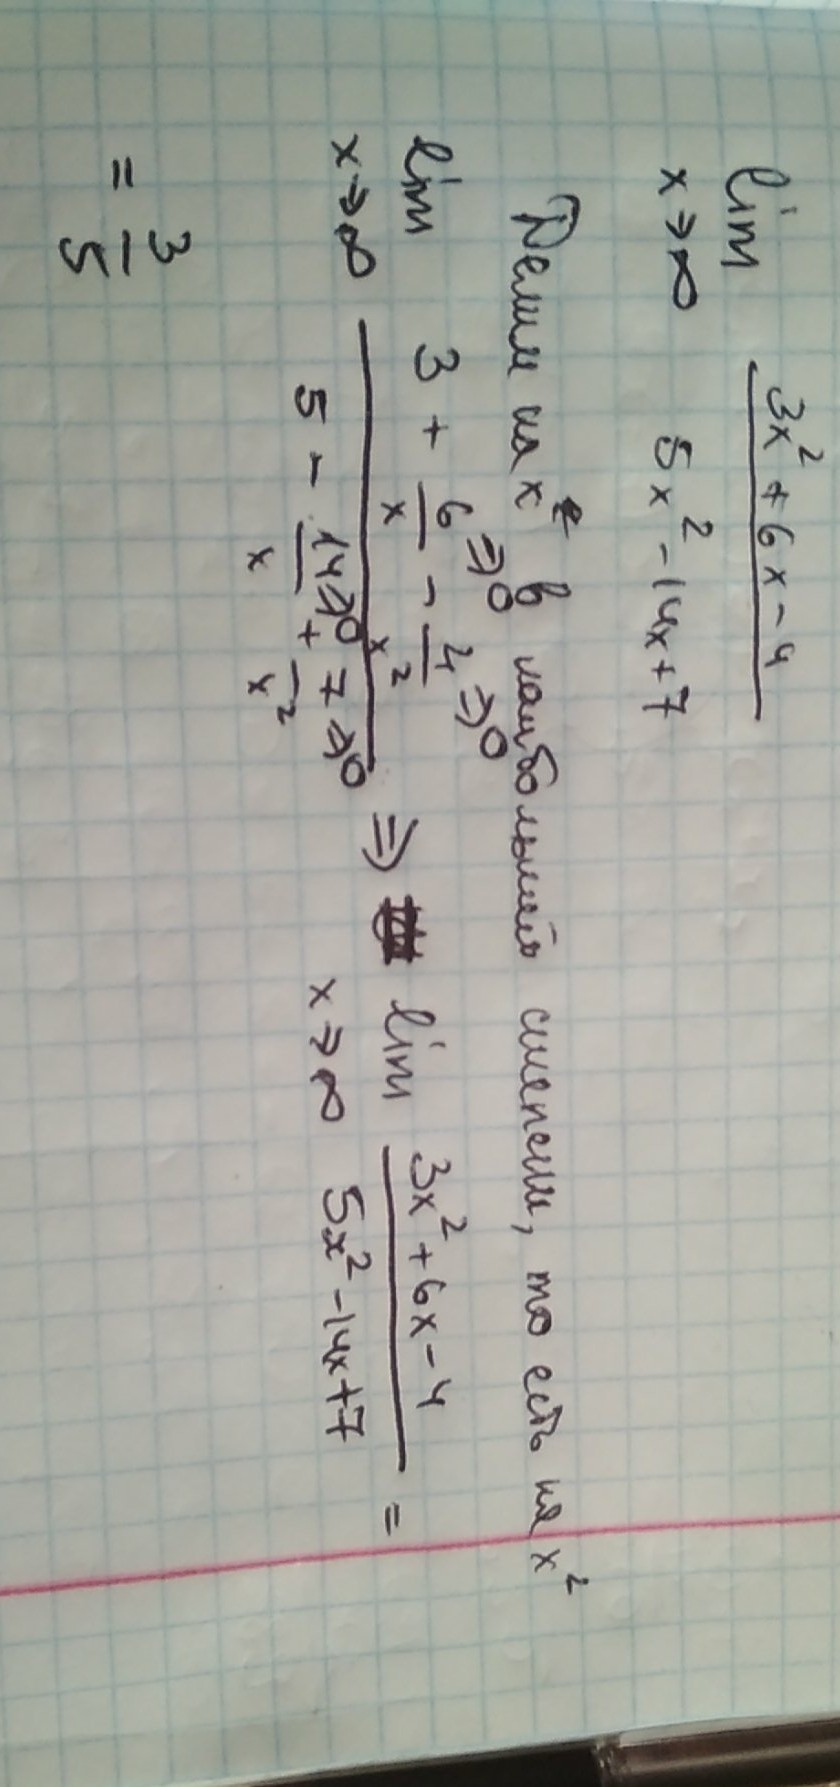 lim x→∞ 3x² + 6x - 4 / 5x² - 14x + 7
Делим на x в наибольшей степени, то есть на x²
lim x→∞ 3 + 6/x →0 - 4/x² →0 / 5 - 14/x →0 + 7/x² →0 ⇒ lim x→∞ 3x² + 6x - 4 / 5x² - 14x + 7 =
= 3/5